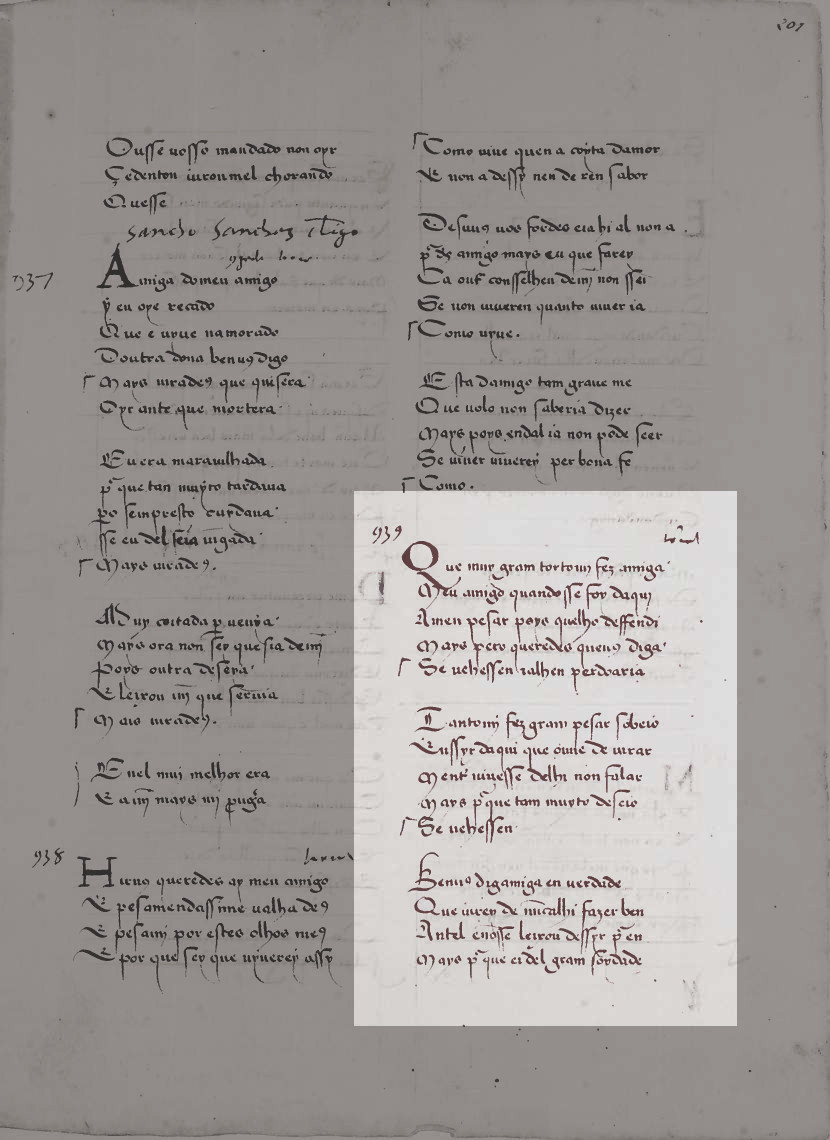 201
Ousse uosso mandado non oyr
Cedenton uiroumel chorando
Quesse
Sancho Sanchez
937
Amiga domeu amigo
ỹ eu oye recado
Que e uyue namorado
Doutra dona benuꝯ digo
Mays uiradeꝯ que quisera
Oyr ante que mortera
Eu era marauilhada
p̄ que tan muyto tardaua
po sempresto cuydaua
sse eu del seia uĩgada
Mays uiradeꝯ.
Muy coitada p̱ uenỹa
Mays ora non sey que sia demĩ
Poys outra desera
E leixou mĩ que seruia
Mais uiradeꝯ.
E uel mui melhor era
E a mĩ mays mi
938
Hiruꝯ queredes ay meu amigo
E pesamendassinne ualha deꝯ
E pesami por estes olhos meꝯ
E por que sey que uyuerey assy
Como uiue quen a coyta damor
E non a dessy nen de ren sabor
Desuuꝯ uos fordes eia hi al non a
p̄ dꝯ amigo mays eu que farey
Ca out̄ consselheu demĩ non ssei
Se non uiueren quanto uiuer ia
Como uyue.
Esta damigo tam graue me
Que uolo non saberia dizer
Mays poys endal ia non pode seer
Se uiuer uiuerey per bona fe
Como.
939
Que muy gram torto mj fez amiga
Meu amigo quandosse foy daquj
Amen pesar poys quelho deffendi
Mays pero queredes queuꝯ diga
Se uehessen ialhen perdoaria
Tantomj fez gram pesar sobeio
Eussyr daqui que ouue de iurar
Ment̄ uiuesse deltr non falar
Mays p̄ que tam muyto deseio
Se uehessen
Benuꝯ digamiga en uerdade
Que iurey de nũcalhi fazer ben
Antel enosse leixou dessyr p̄ en
Mays p̄ que ei del gram soydade